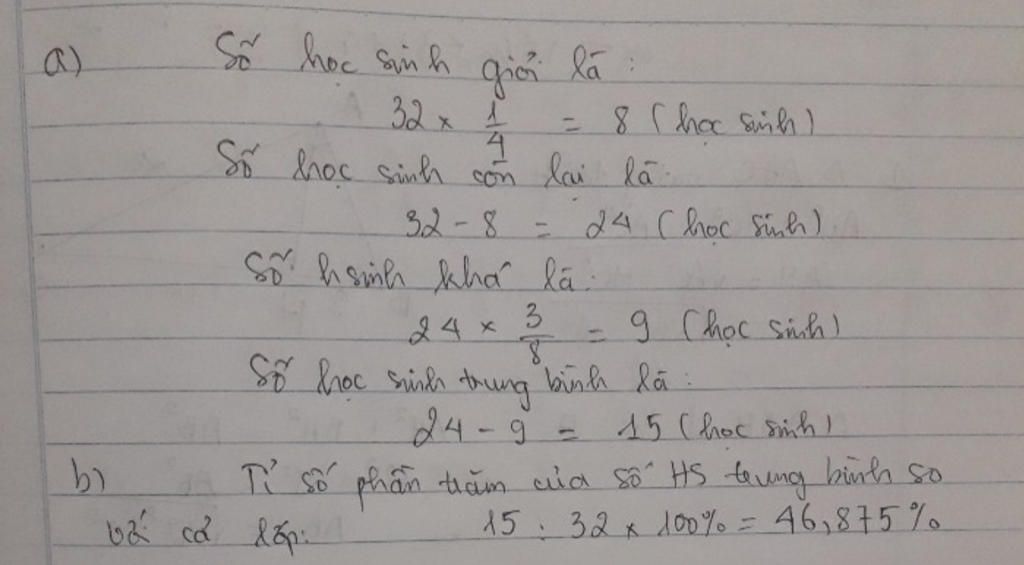 a) Số học sinh giỏi là:
32 × 1/4 = 8 (học sinh)
Số học sinh còn lại là:
32 - 8 = 24 (học sinh)
Số h sinh khá là:
24 × 3/8 = 9 (học sinh)
Số học sinh trung bình là:
24 - 9 = 15 (học sinh)
b) Tỉ số phần trăm của số HS trung bình so
với cả lớp: 15 : 32 × 100% = 46,875%